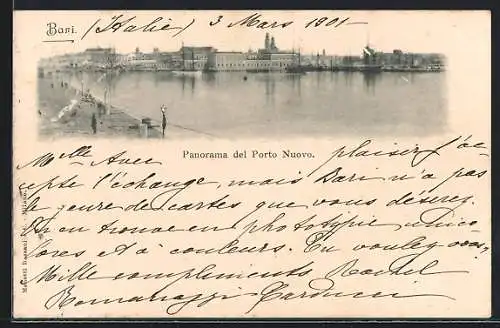 Bari. (Italie) 3 Mars 1901-
Panorama del Porto Nuovo.
Mlle, Avec plaisir j'ac-
cepte l'échange, mais Bari n'a pas
le genre de cartes que vous désirez.
On en trouve en phototypie unico-
lores et à couleurs. En voulez-vous?
Mille compliments Rachel
Romanazzi Carducci